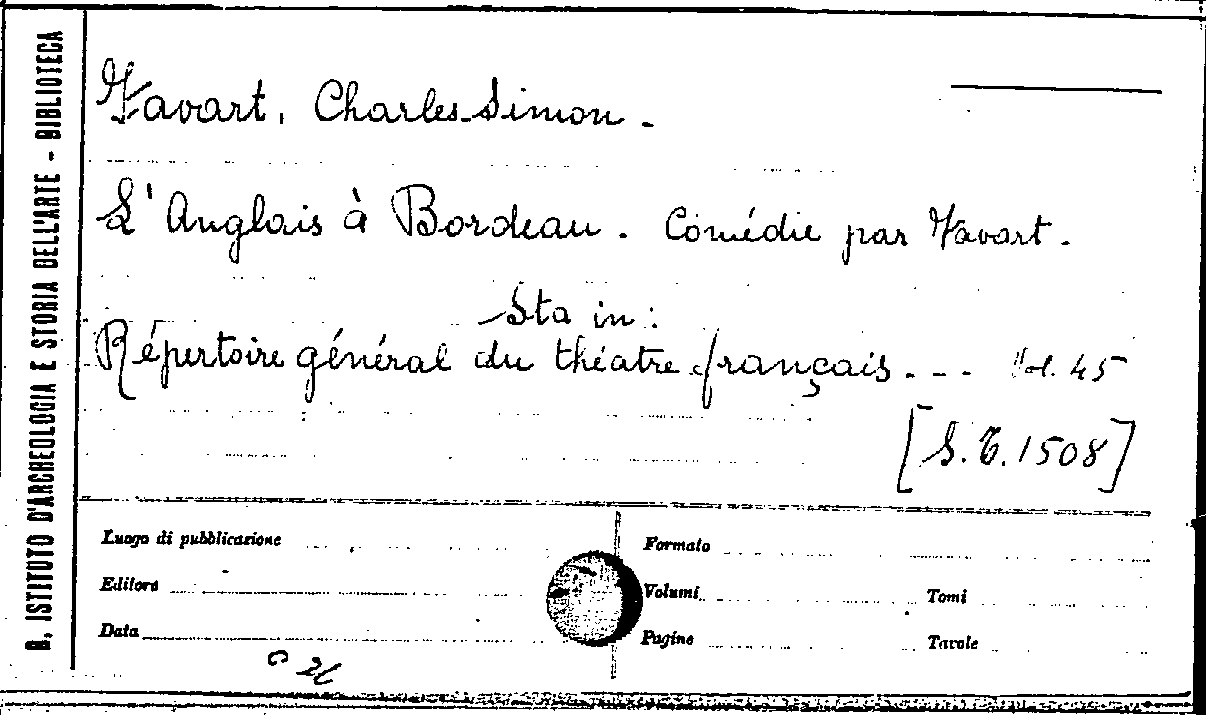 R. ISTITUTO D'ARCHEOLOGIA E STORIA DELL'ARTE - BIBLIOTECA
Favart, Charles-Simon.
L'Anglais à Bordeau. Comédie par Favart.
Sta in:
Répertoire général du théatre français --- Vol. 45
[S.T. 1508]
Luogo di pubblicazione
Formato
Editore
Volumi
Tomi
Data
Pagine
Tavole